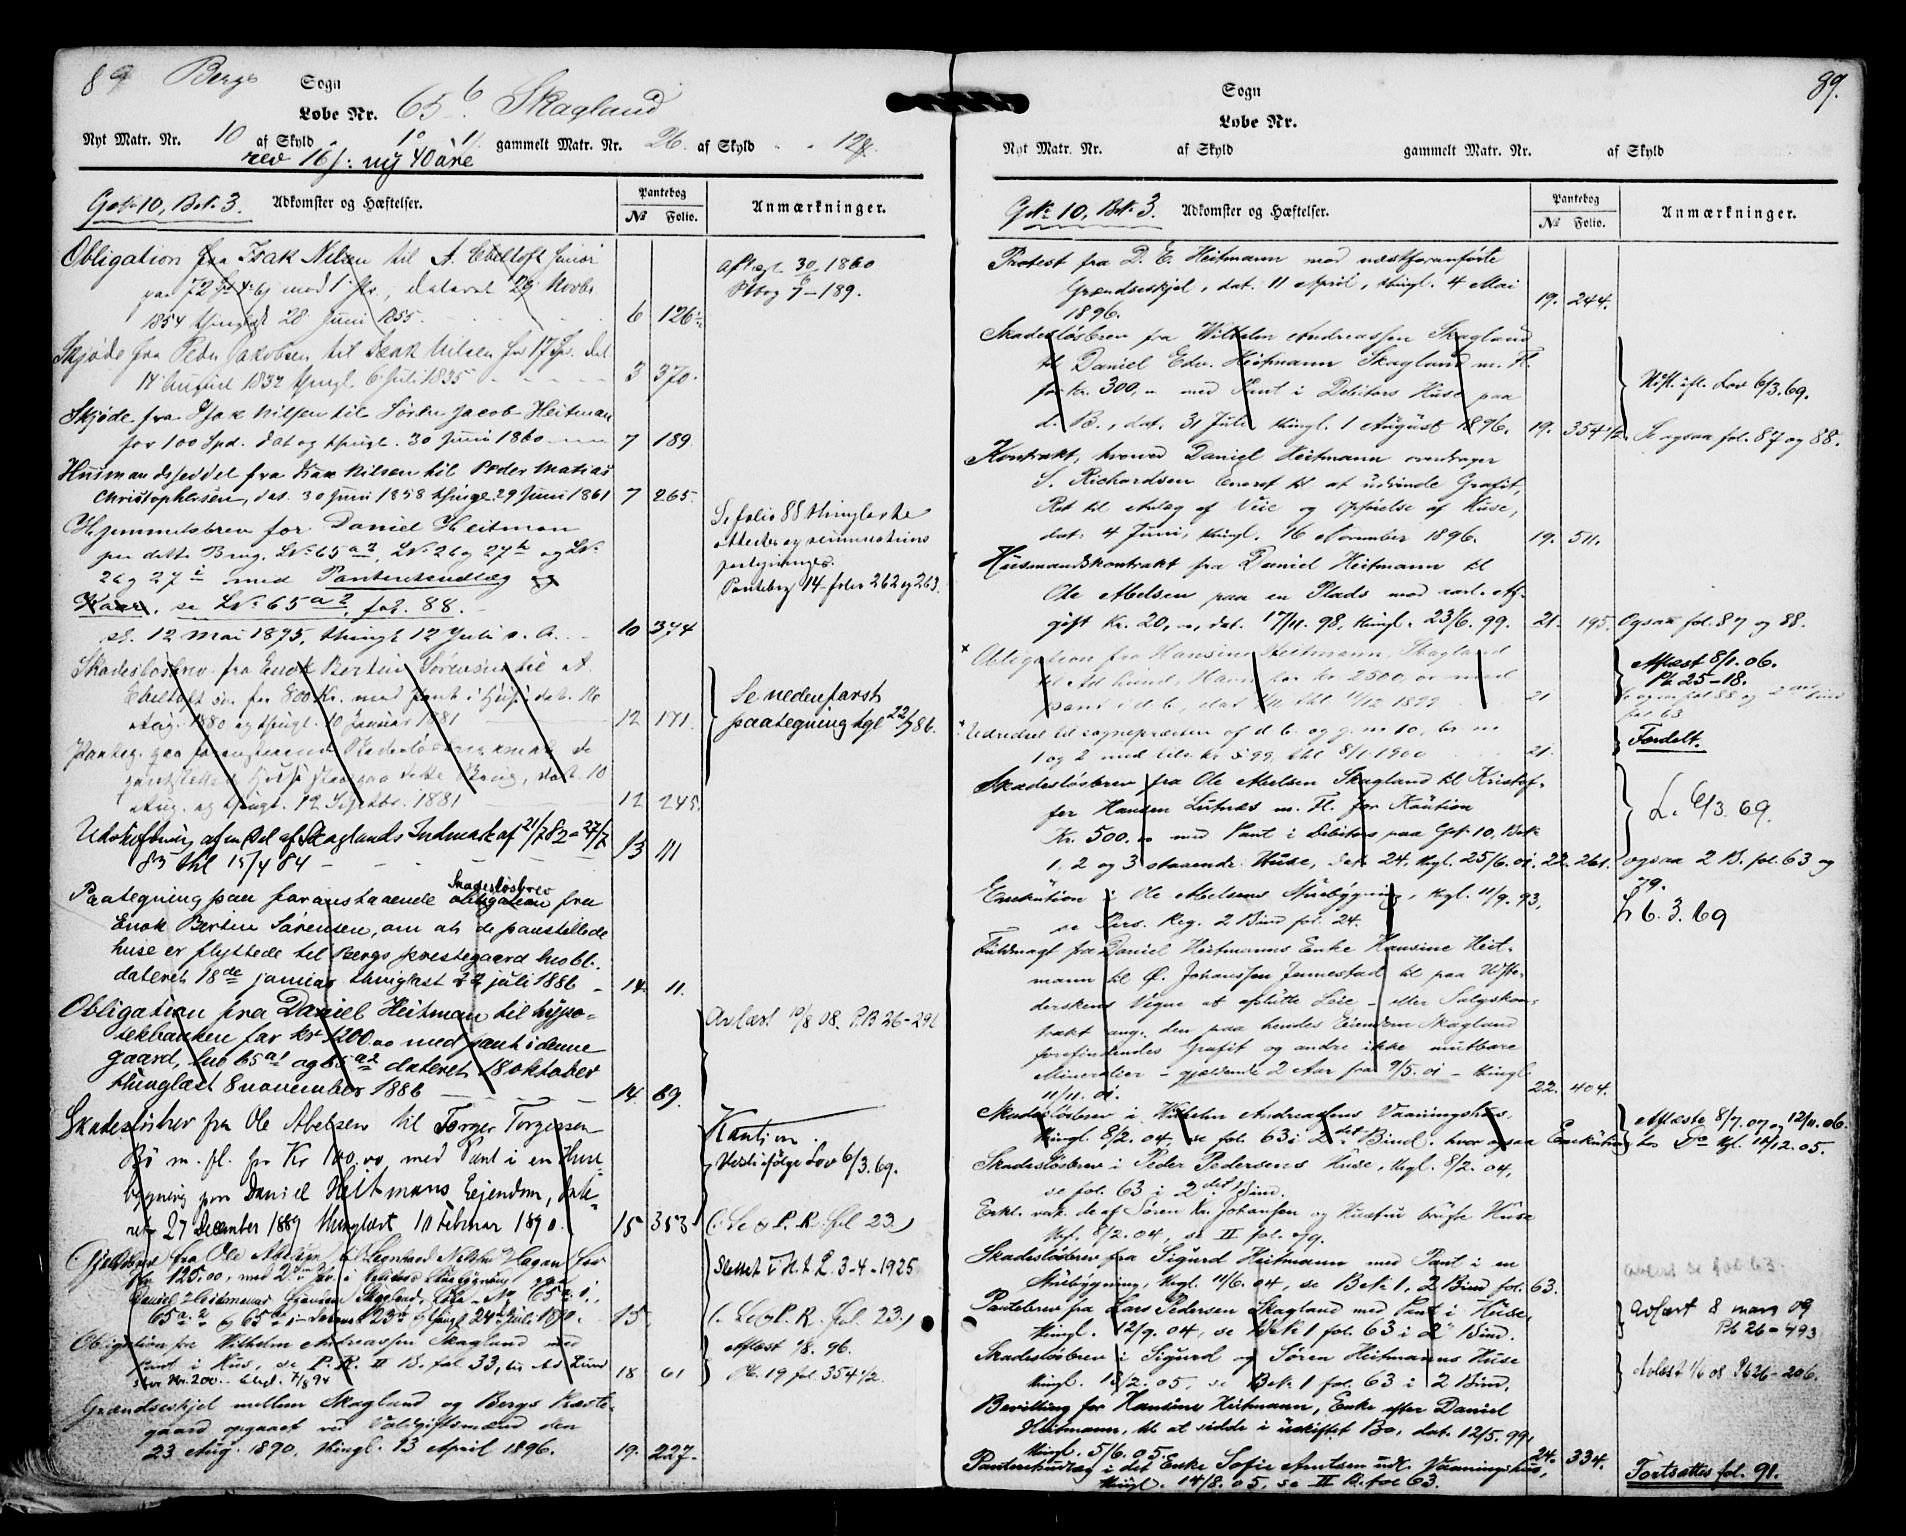 89 Bergs Sogn
Løbe Nr. 65 b Skagland
Nyt Matr. Nr. 10 af Skyld 1 gammelt Matr. Nr. 26 af Skyld 12
rev 16/: ny 40 øre
Gno 10, Bno 3. Adkomster og Hæftelser. Pantebog № Folio. Anmærkninger.
Obligation fra Isak Nilsen til A. Ebeltoft junior
paa 72 med 1 Pr., dateret 29 Novbr
1854 thinglyst 28 Juni 1855 6 126
Aflæst 30/6 1860
Pbog 7-189.
Skjøde fra Peder Jakobsen til Isak Nilsen for 17 Spd. dat
14 August 1832 thingl. 6 Juli 1835 3 370.
Skjøde fra Isak Nilsen til Søren Jacob Heitman
for 100 Spd. dat og thingl. 30 Juni 1860 7 189
Husmandsseddel fra Isak Nilsen til Peder Matias
Christophersen, dat. 30 Juni 1858 thingl. 29 Juni 1861 7 265.
Hjemmelsbrev for Daniel Heitman
paa dette Brug, LNo 65 a 2, LNo 26 og 27 h og LNo
26 og 27 i med Panteretsudlæg og
Kaar, se LNo 65 a 2, fol. 88.
d. 12 Mai 1875, thingl. 12 Juli s. A. 10 374
Se folio 88 thinglæste
attester og
paategninger.
Pantebog 14 folio 262 og 263.
Skadesløsbrev fra Enok Bertin Sørensen til A.
Ebeltoft sen. for 800 Kr. med Pant i Huse dat. 16
Aug. 1880 og thingl. 10 Januar 1881 12 171.
Se nedenfarst
paategning tgl 22/7 86.
Paateg. paa foranstaaende Skadesløsbrev
dat. 10
Aug. og thingl. 12 Septbr. 1881 12 245.
Udskiftning af en Del af Skaglands Indmark af 21/7 82 - 27/7
83 thl 15/4 84 13 111
Paategning paa foranstaaende Skadesløsbrev obligation fra
Enok Bertin Sørensen, om at de pantstillede
huse er flyttede til Bergs prestegaard
dateret 18de januar thinglæst 22 juli 1886 14. 11.
Obligation fra Daniel Heitman til hypo-
tekbanken for kr 1200.00 med pant i denne
gaard, lno 65 a1 og 65 a2 dateret 18 oktober
thinglæst 8 november 1886 14. 69.
Avlæst 10/8 08. P.B 26-291
Skadesløsbrev fra Ole Abelsen til Torger Torgersen
Bø m. fl. for Kr 100,00 med Pant i en Huse-
bygning paa Daniel Heitmans Eiendom, date-
ret 27 December 1889 thinglæst 10 Februar 1890. 15 353
Kaution.
Vestl ifølge Lov 6/3. 69.
(Se P. R. fol 23.)
Gjeldsbrev fra Ole Abelsen til Leonhard Nilsen Hagan for
Kr 125.00, med 2den Pr. i
Daniel Heitmanns Eiendom Skagland, LNo 65 a. 1,
65 a. 2 og 65 b. dateret 23 og thingl. 24 Juli 1890. 15
Slettet i H. t. L. 3-4-1925
(Se P. R. fol. 23.)
Obligation fra Wilhelm Andreassen Skagland med
Pant i Hus, se P. R. II B. fol. 33, til Ad. Lund
stor Kr. 200. thgl. 7/8 94 18 61
Aflæst 1/8. 96.
Pb. 19 fol. 354 1/2.
Grændseskjel mellem Skagland og Bergs Præste-
gaard opgaaet ved Voldgiftsmænd den
23 Aug. 1890, thingl. 13 April 1896. 19. 227.
89.
Sogn
Løbe Nr.
Nyt Matr. Nr. af Skyld gammelt Matr. Nr. af Skyld
GNo 10, BNo 3. Adkomster og Hæftelser. Pantebog № Folio. Anmærkninger.
Protest fra D. E. Heitmann mod næstforanførte
Grændseskjel, dat. 11 April, thingl. 4 Mai
1896. 19. 244.
Skadesløsbrev fra Wilhelm Andreassen Skagland
til Daniel Edv. Heitmann Skagland m. fl.
for Kr. 300,00 med Pant i Debitors Huse paa
d. B., dat. 31 Juli thingl. 1 August 1896. 19. 354 1/2
Vestl. ifl. Lov 6/3. 69.
Se ogsaa fol. 87 og 88.
Kontrakt, hvorved Daniel Heitmann overdrager
S. Richardsen Eneret til at udvinde Grafit,
Ret til Anlæg af Veie og Opførelse af Huse,
dat. 4 Juni, thingl. 16 November 1896. 19. 511.
Husmandskontrakt fra Daniel Heitmann til
Ole Abelsen paa en Plads mod aarl. Af-
gift Kr. 20,00, dat. 17/11. 98, thingl. 23/6. 99. 21. 195. Ogsaa fol. 87 og 88.
x Obligation fra Hansine Heitmann, Skagland
til Ad Lund, Havn for kr 2500,00 med
pant i d. b, dat 1/11 thl 11/12 1899 21
Aflæst 8/1. 06.
Pb 25-18.
Se ogsaa fol 88 og 2det bind
fol 63
x Udredsel til sognepræsten af d. b. og g. no 10, br no
1 og 2 med tils. kr 5.99, thl 8/1 1900 21.
Fordelt.
Skadesløsbrev fra Ole Abelsen Skagland til Kristof-
fer Hansen Lutnæs m. fl. for Kaution
Kr. 500.00 med Pant i Debitors paa Gno 10, Bno
1, 2 og 3 staaende Huse, dat. 24. thgl. 25/6. 01. 22. 261.
L. 6/3. 69.
ogsaa 2 B. fol. 63 og
79.
L. 6. 3. 69
Exekution i Ole Abelsens Stuebygning, thgl. 11/9. 93,
se Pers. Reg. 2 Bind fol. 24.
Fuldmagt fra Daniel Heitmanns Enke Hansine Heit-
mann til Ø. Johanssen Jennestad til paa Udste-
derskens Vegne at afslutte Leie- eller Salgskon-
trakt ang. den paa hendes Eiendom Skagland
forefindendes Grafit og andre ikke mutbare
Mineralier - gjældende 2 Aar fra 9/5. 01 - thingl
11/11. 01. 22. 404.
Skadesløsbrev i Wilhelm Andreassens Vaaningshus.
thingl. 8/2. 04, se fol. 63 i 2det Bind, hvor ogsaa Exekution
Aflæste 8/7. 07 og 12/11. 06.
Do thgl. 14/12. 05.
Skadesløsbrev i Peder Pedersens Huse, thgl. 8/2. 04,
se fol. 63 i 2det Bind.
Erkl. ved. de af Søren Kr. Johansen og Hustru brugte Huse
thgl. 8/2. 04, se II fol. 79.
Skadesløsbrev fra Sigurd Heitmann med Pant i en
Stuebygning, thgl. 11/6. 04, se BNo 1, 2 Bind fol. 63.
Avlæst se fol 63.
Pantebrev fra Lars Pedersen Skagland med Pant i Huse,
thingl. 12/9. 04, se BNo 1 fol. 63 i 2 Bind.
Avlæst 8 mars 09
Pb 26-493
Skadesløsbrev i Sigurd og Søren Heitmanns Huse
thingl. 13/2. 05, se BNo 1 fol. 63 i 2 Bind.
Avlæst 1/6 08 Pb 26-206.
Bevilling for Hansine Heitmann, Enke efter Daniel
Heitmann, til at sidde i uskiftet Bo, dat. 12/5. 99,
thingl. 5/6. 05. 24. 334.
Panteudlæg i det Enke Sofie Arntsen udl. Vaaningshus,
thingl. 14/8. 05, se II B. fol 63.
Fortsættes fol. 91.